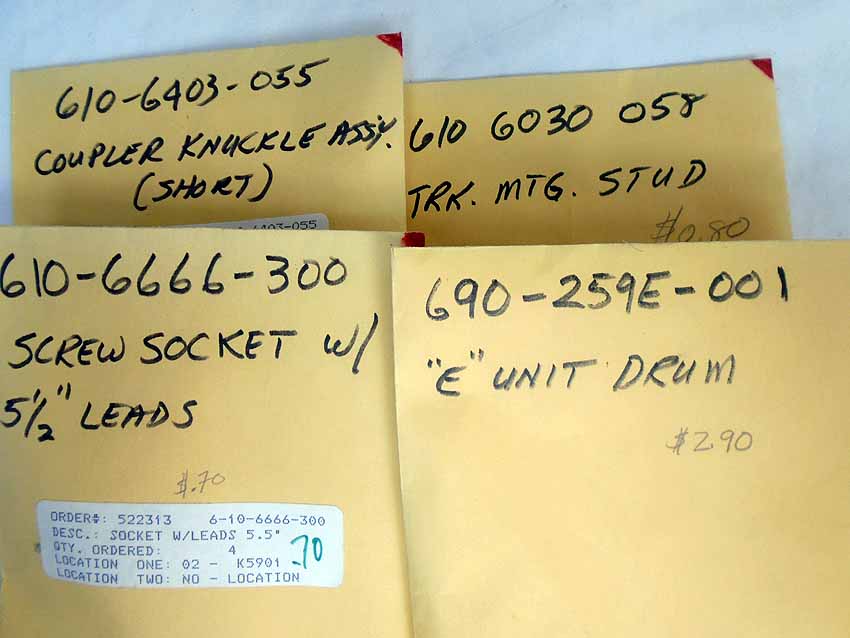 610-6403-055
COUPLER KNUCKLE ASS'Y.
(SHORT)
6403-055
610 6030 058
TRK. MTG. STUD
$0.80
610-6666-300
SCREW SOCKET W/
5 1/2" LEADS
$.70
ORDER#: 522313 6-10-6666-300
DESC.: SOCKET W/LEADS 5.5"
QTY. ORDERED: 4
LOCATION ONE: 02 - K5901
LOCATION TWO: NO - LOCATION
.70
690-259E-001
"E" UNIT DRUM
$2.90